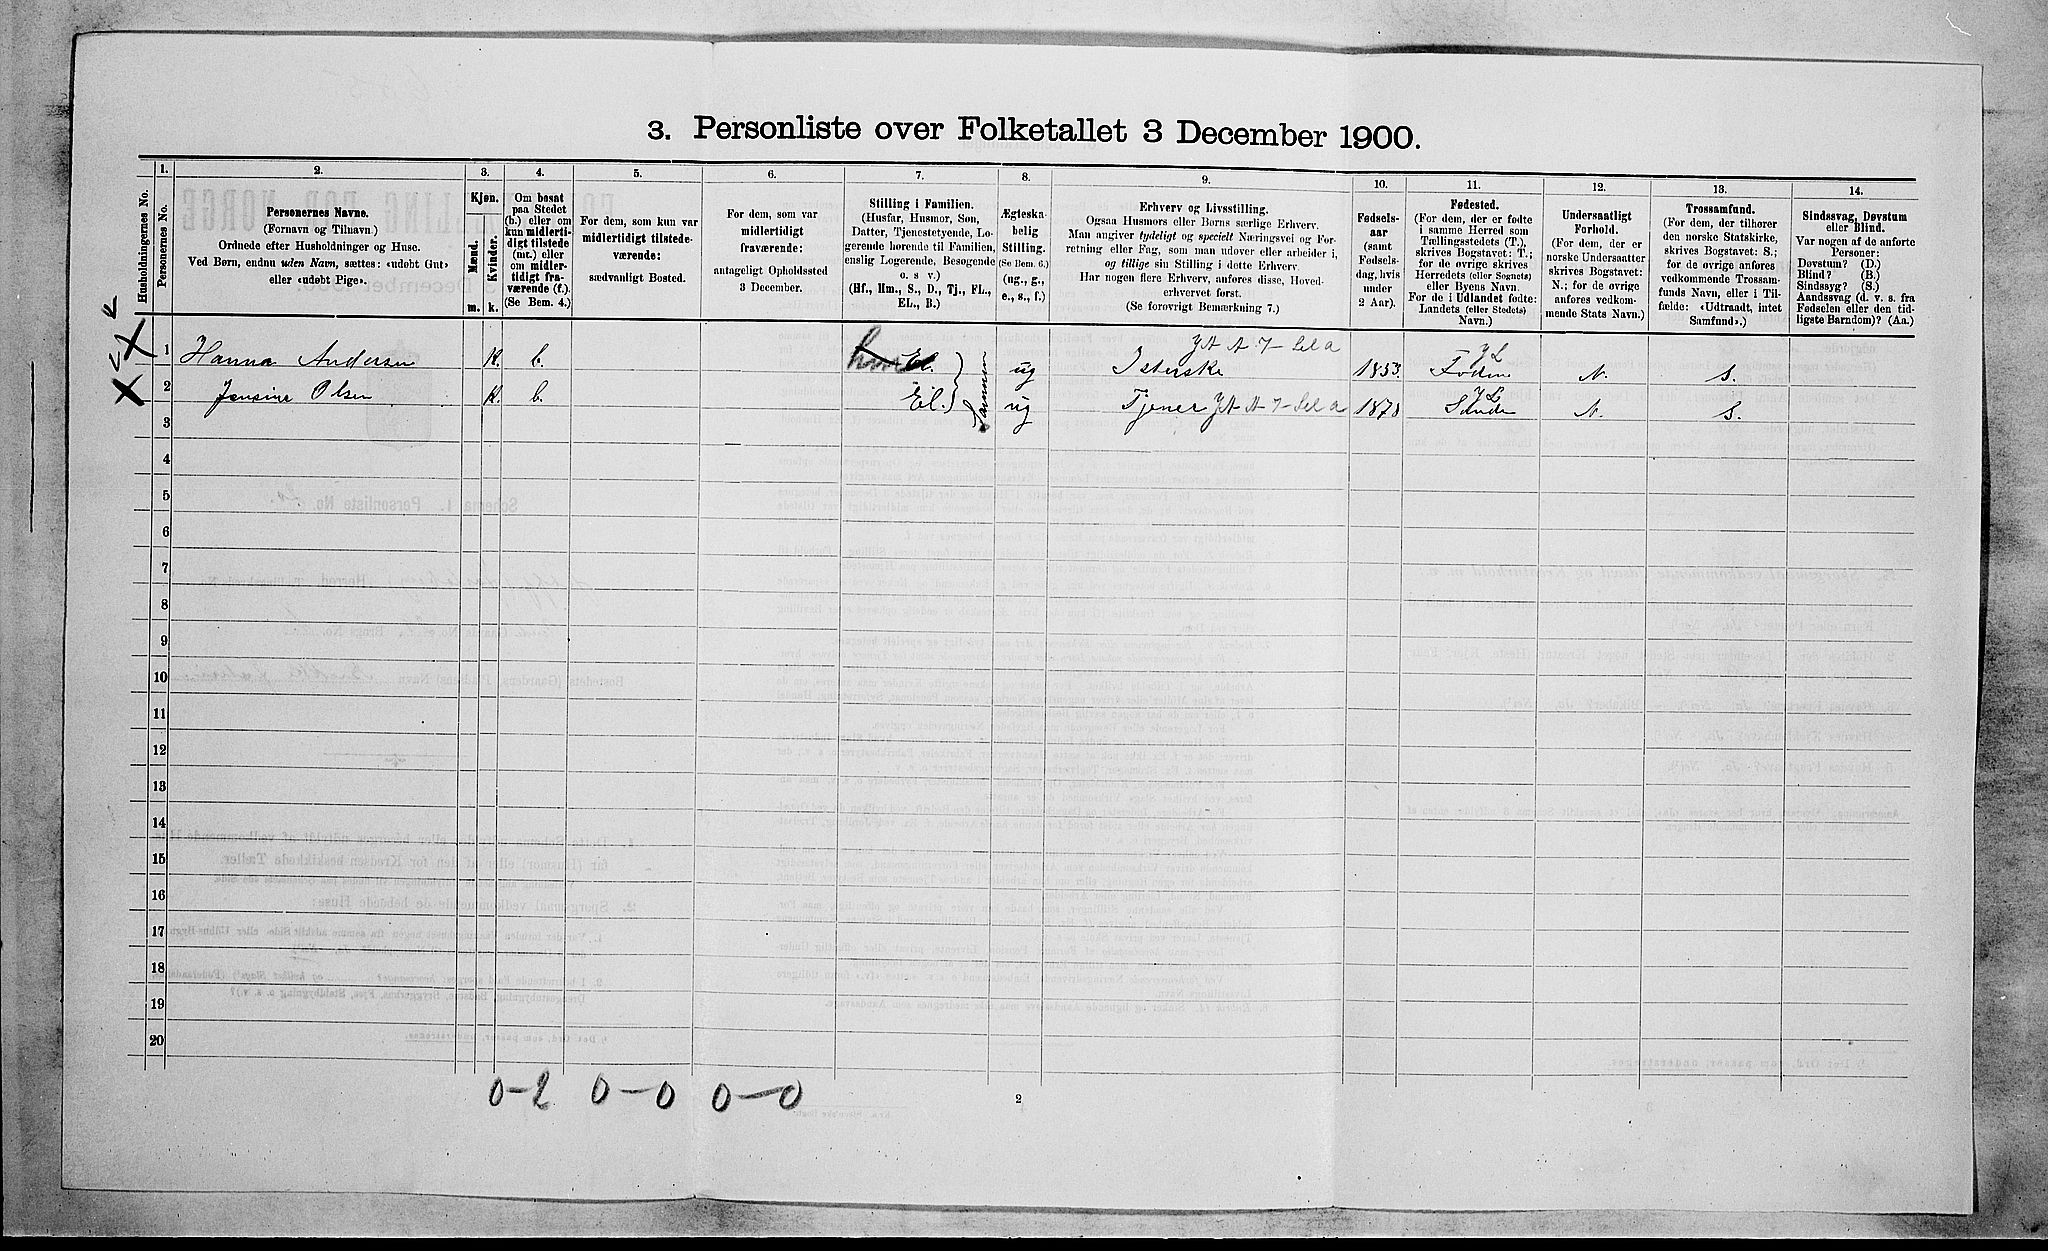 3. Personliste over Folketallet 3 December 1900.
Husholdningernes No.
1.
Personernes No.
2.
Personernes Navne.
(Fornavn og Tilnavn.)
Ordnede efter Husholdninger og Huse.
Ved Børn, endnu uden Navn, sættes: «udøbt Gut»
eller «udøbt Pige».
3.
Kjøn.
Mænd.
Kvinder.
m. k.
4.
Om bosat
paa Stedet
(b.) eller om
kun midlerti-
digt tilstede
(mt.) eller
om midler-
tidigt fra-
værende (f.).
(Se Bem. 4.)
5.
For dem, som kun var
midlertidigt tilstede-
værende:
sædvanligt Bosted.
6.
For dem, som var
midlertidigt
fraværende:
antageligt Opholdssted
3 December.
7.
Stilling i Familien.
(Husfar, Husmor, Søn,
Datter, Tjenestetyende, Lo-
gerende hørende til Familien,
enslig Logerende, Besøgende
o. s v.)
(Hf., Hm., S., D., Tj., FL.,
EL., B.)
8.
Ægteska-
belig
Stilling.
(Se Bem. 6.)
(ug., g.,
e., s., f.)
9.
Erhverv og Livsstilling.
Ogsaa Husmors eller Børns særlige Erhverv.
Man angiver tydeligt og specielt Næringsvei og For-
retning eller Fag, som man udøver eller arbeider i,
og tillige sin Stilling i dette Erhverv.
Har nogen flere Erhverv, anføres disse, Hoved-
erhvervet først.
(Se forøvrigt Bemærkning 7.)
10.
Fødsels-
aar
(samt
Fødsels-
dag, hvis
under
2 Aar).
11.
Fødested.
(For dem, der er fødte
i samme Herred som
Tællingsstedets (T.),
skrives Bogstavet: T.;
for de øvrige skrives
Herredets (eller Sognets)
eller Byens Navn.
For de i Udlandet fødte:
Landets (eller Stedets)
Navn.)
12.
Undersaatligt
Forhold.
(For dem, der er
norske Undersaatter
skrives Bogstavet:
N.; for de øvrige
anføres vedkom-
mende Stats Navn.)
13.
Trossamfund.
(For dem, der tilhører
den norske Statskirke,
skrives Bogstavet: S.;
for de øvrige anføres
vedkommende Trossam-
funds Navn, eller i Til-
fælde: «Udtraadt, intet
Samfund».)
14.
Sindssvag, Døvstum
eller Blind.
Var nogen af de anførte
Personer:
Døvstum? (D.)
Blind? (B.)
Sindssyg? (S.)
Aandssvag (d. v. s. fra
Fødselen eller den tid-
ligste Barndom)? (Aa.)
1 Hanna Andersen K. b. El. ug 1853. N. S.
2 Jensine Olsen K. b. El. ug Tjener 1878 N. S.
3
4
5
6
7
8
9
10
11
12
13
14
15
16
17
18
19
20
0-2 0-0 0-0
2